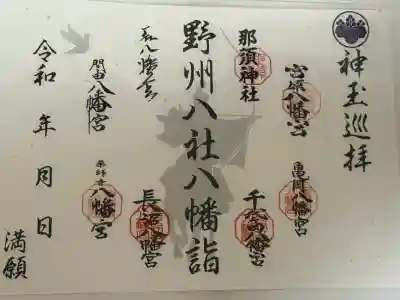 神玉巡拝
宮原八幡宮
亀岡八幡宮
那須神社
千渡八幡宮
野州八社八幡詣
長沼八幡宮
門田八幡宮
薬師寺八幡宮
令和 年 月 日
満願